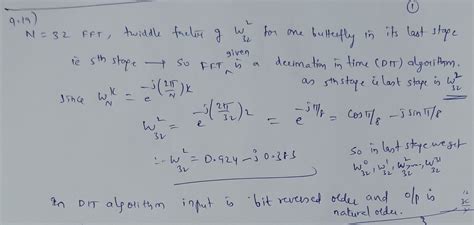 ①
9.19)
N = 32 FFT, twiddle factor of W₃₂² for one butterfly in its last stage
ie 5th stage → so given FFT is a decimation in time (DIT) algorithm.
as 5th stage is last stage is W₃₂²
Since W_N^K = e^{-j(2π/N)K}
W₃₂² = e^{-j(2π/32)2} = e^{-jπ/8} = cos π/8 - j sin π/8
∴ W₃₂² = 0.924 - j 0.383
So in last stage we get
W₃₂⁰, W₃₂¹, W₃₂², ...,
In DIT algorithm input is bit reversed order and o/p is
natural order.